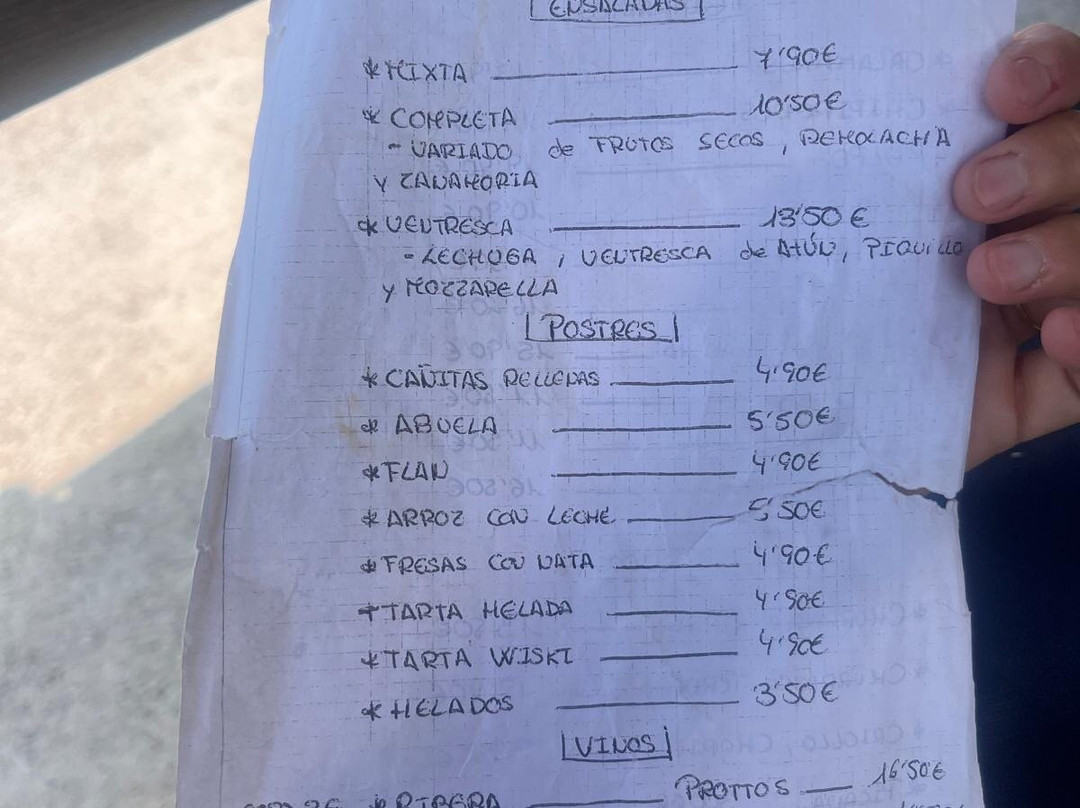 ENSALADAS
* MIXTA 7'90€
* COMPLETA 10'50€
- VARIADO de FRUTOS SECOS, REMOLACHA
Y ZANAHORIA
* VENTRESCA 13'50€
- LECHUGA, VENTRESCA de ATÚN, PIQUILLO
y MOZZARELLA
POSTRES
* CAÑITAS RELLENAS 4'90€
* ABUELA 5'50€
* FLAN 4'90€
* ARROZ CON LECHE 5'50€
* FRESAS CON NATA 4'90€
* TARTA HELADA 4'90€
* TARTA WISKI 4'90€
* HELADOS 3'50€
VINOS
* RIBERA PROTTOS 16'50€